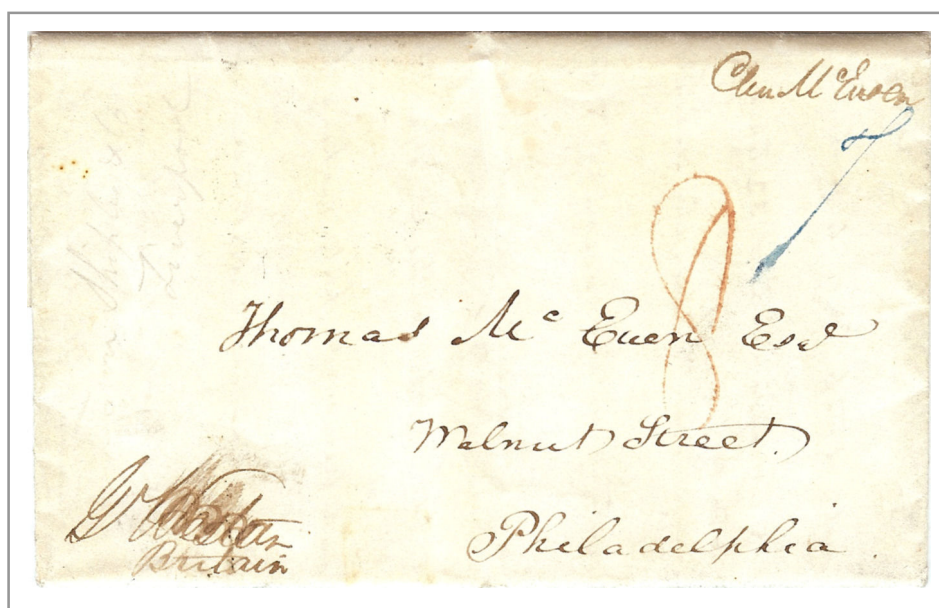 Chas McEuen
8
Thomas Mc Euen Esqr
Walnut Street.
Philadelphia
Gt Western
Britain